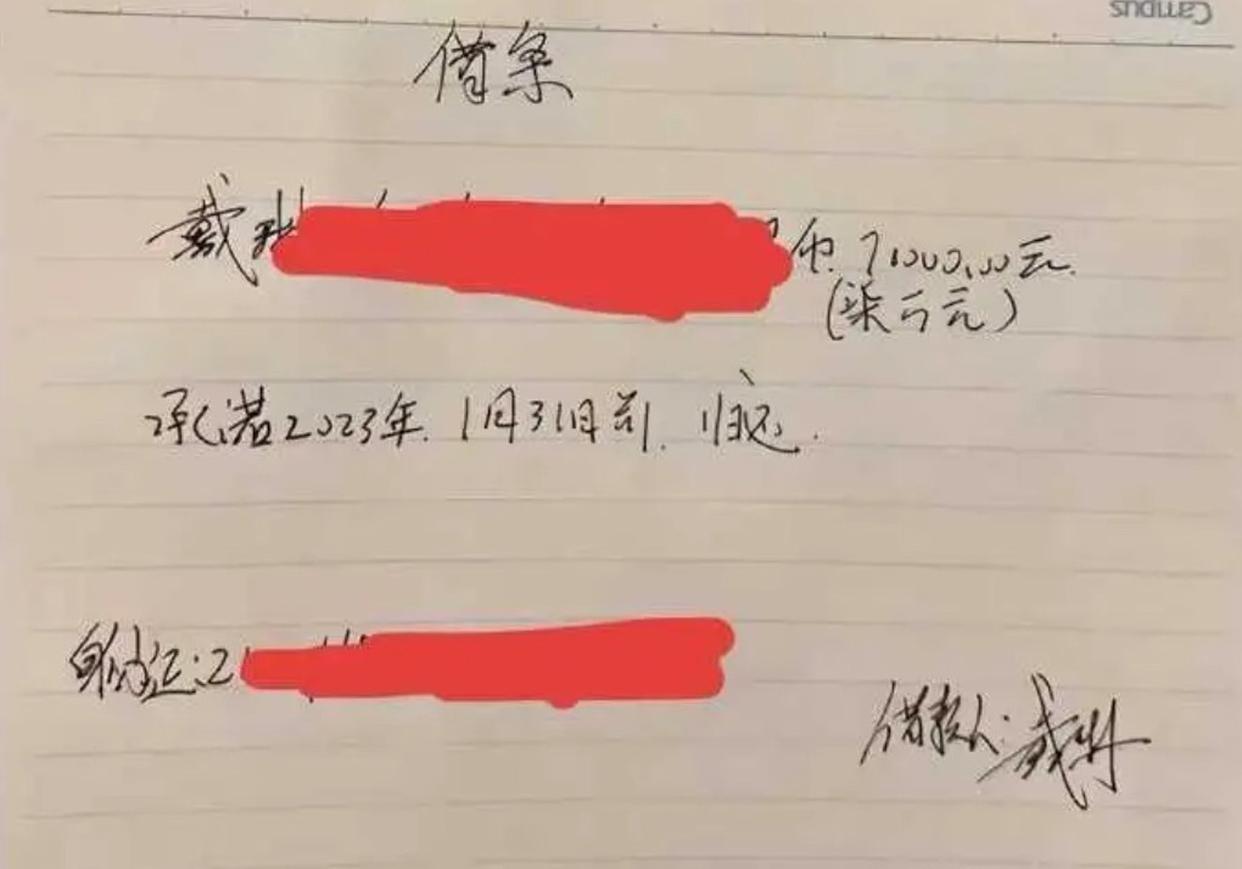 Campus
借条
戴 币 7000.00元.
(柒仟元)
承诺2023年.1月31日前.归还.
身份证:2
借款人:戴